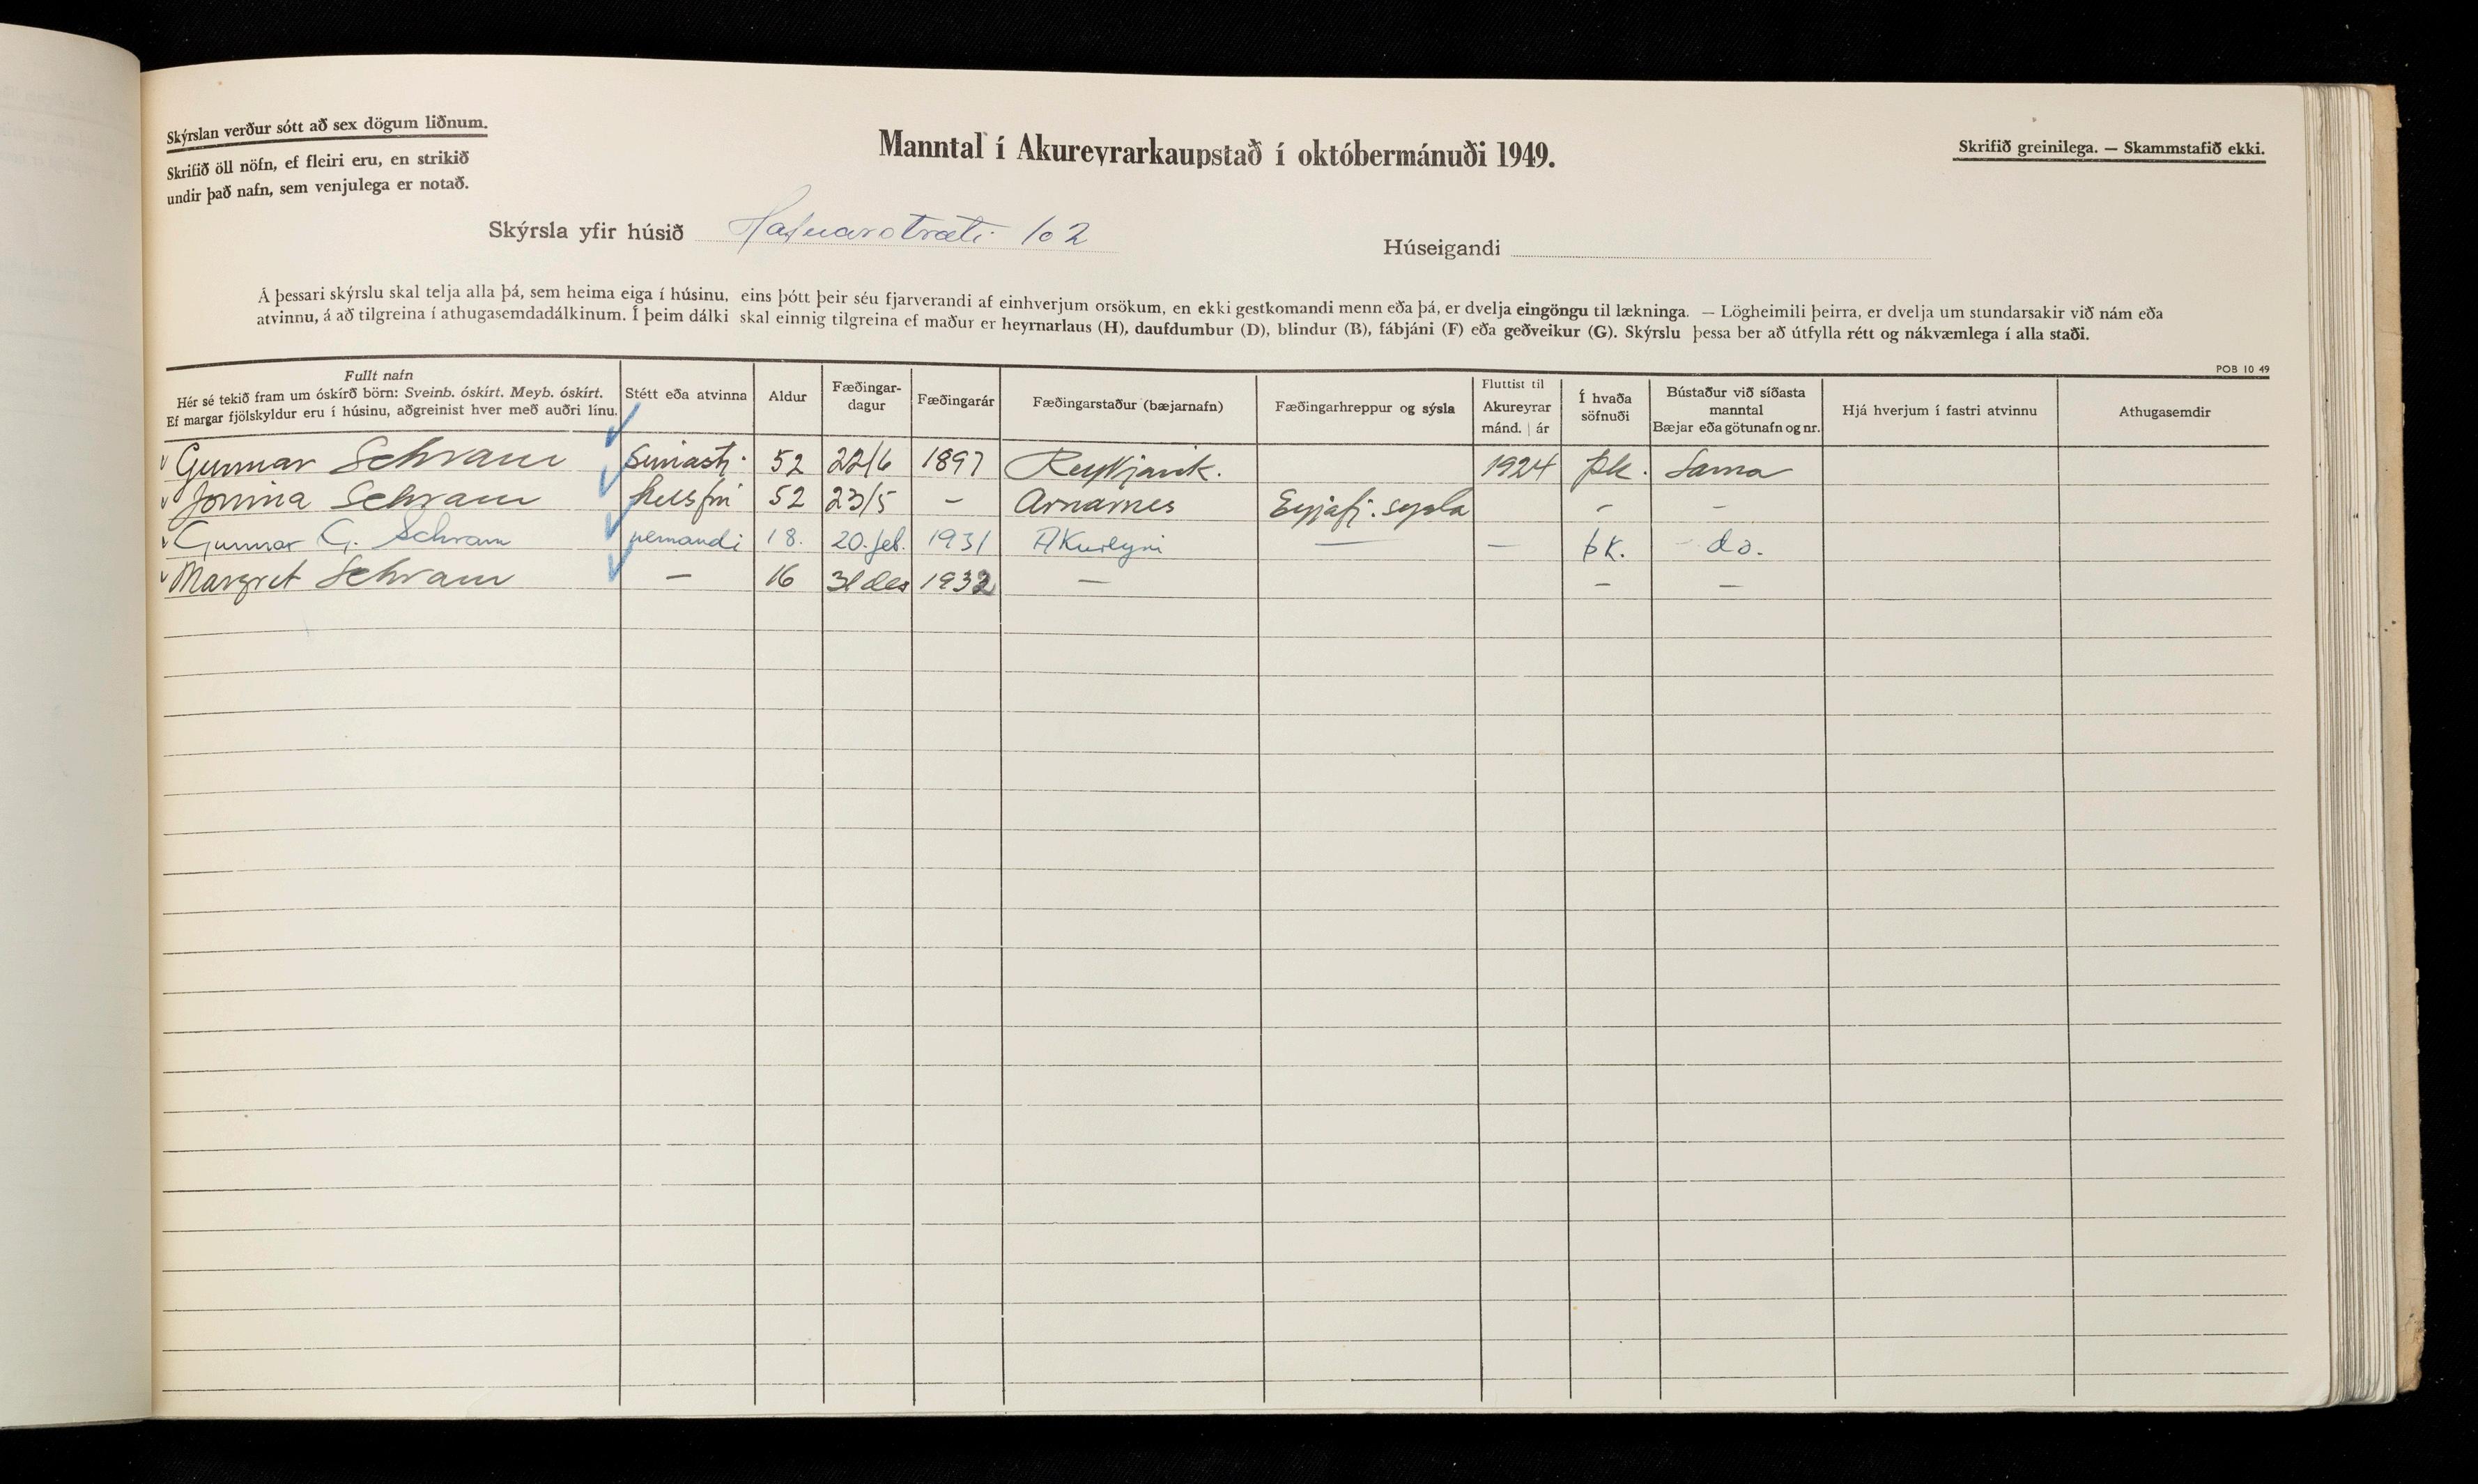 Skýrslan verður sótt að sex dögum liðnum.
Skrifið öll nöfn, ef fleiri eru, en strikið
undir það nafn, sem venjulega er notað.
Manntal í Akureyrarkaupstað í októbermánuði 1949.
Skrifið greinilega. — Skammstafið ekki.
Skýrsla yfir húsið Hafnarstræti 102
Húseigandi
Á þessari skýrslu skal telja alla þá, sem heima eiga í húsinu, eins þótt þeir séu fjarverandi af einhverjum orsökum, en ekki gestkomandi menn eða þá, er dvelja eingöngu til lækninga. — Lögheimili þeirra, er dvelja um stundarsakir við nám eða
atvinnu, á að tilgreina í athugasemdadálkinum. Í þeim dálki skal einnig tilgreina ef maður er heyrnarlaus (H), daufdumbur (D), blindur (B), fábjáni (F) eða geðveikur (G). Skýrslu þessa ber að útfylla rétt og nákvæmlega í alla staði.
POB 10 49
Fullt nafn
Hér sé tekið fram um óskírð börn: Sveinb. óskírt. Meyb. óskírt.
Ef margar fjölskyldur eru í húsinu, aðgreinist hver með auðri línu.
Stétt eða atvinna
Aldur
Fæðingar-
dagur
Fæðingarár
Fæðingarstaður (bæjarnafn)
Fæðingarhreppur og sýsla
Fluttist til
Akureyrar
mánd. | ár
Í hvaða
söfnuði
Bústaður við síðasta
manntal
Bæjar eða götunafn og nr.
Hjá hverjum í fastri atvinnu
Athugasemdir
Gunnar Schram símastj. 52 22/6 1897 Reykjavík. 1924 þk. Sama
Jonina Schram húsfrú 52 23/5 – Arnarnes Eyjafj. sysla – –
Gunnar G. Schram nemandi 18. 20. feb. 1931 Akureyri — — þk. - do.
Margret Schram — 16 31 des 1932 — – —